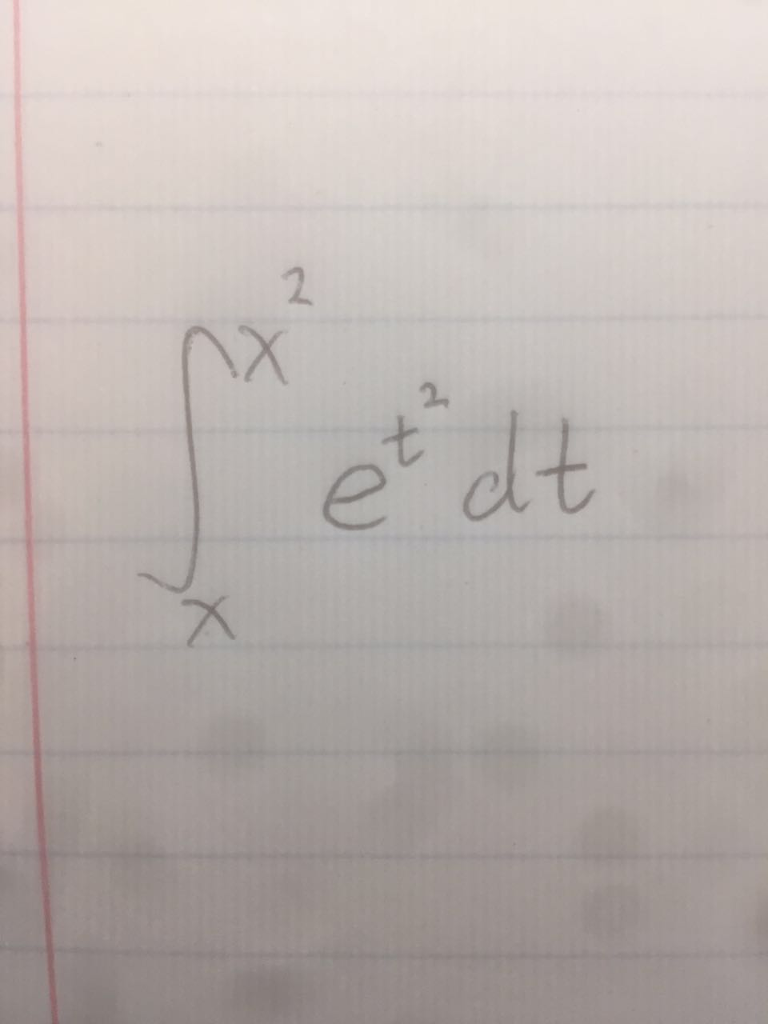 ∫_x^{x^2} e^{t^2} dt